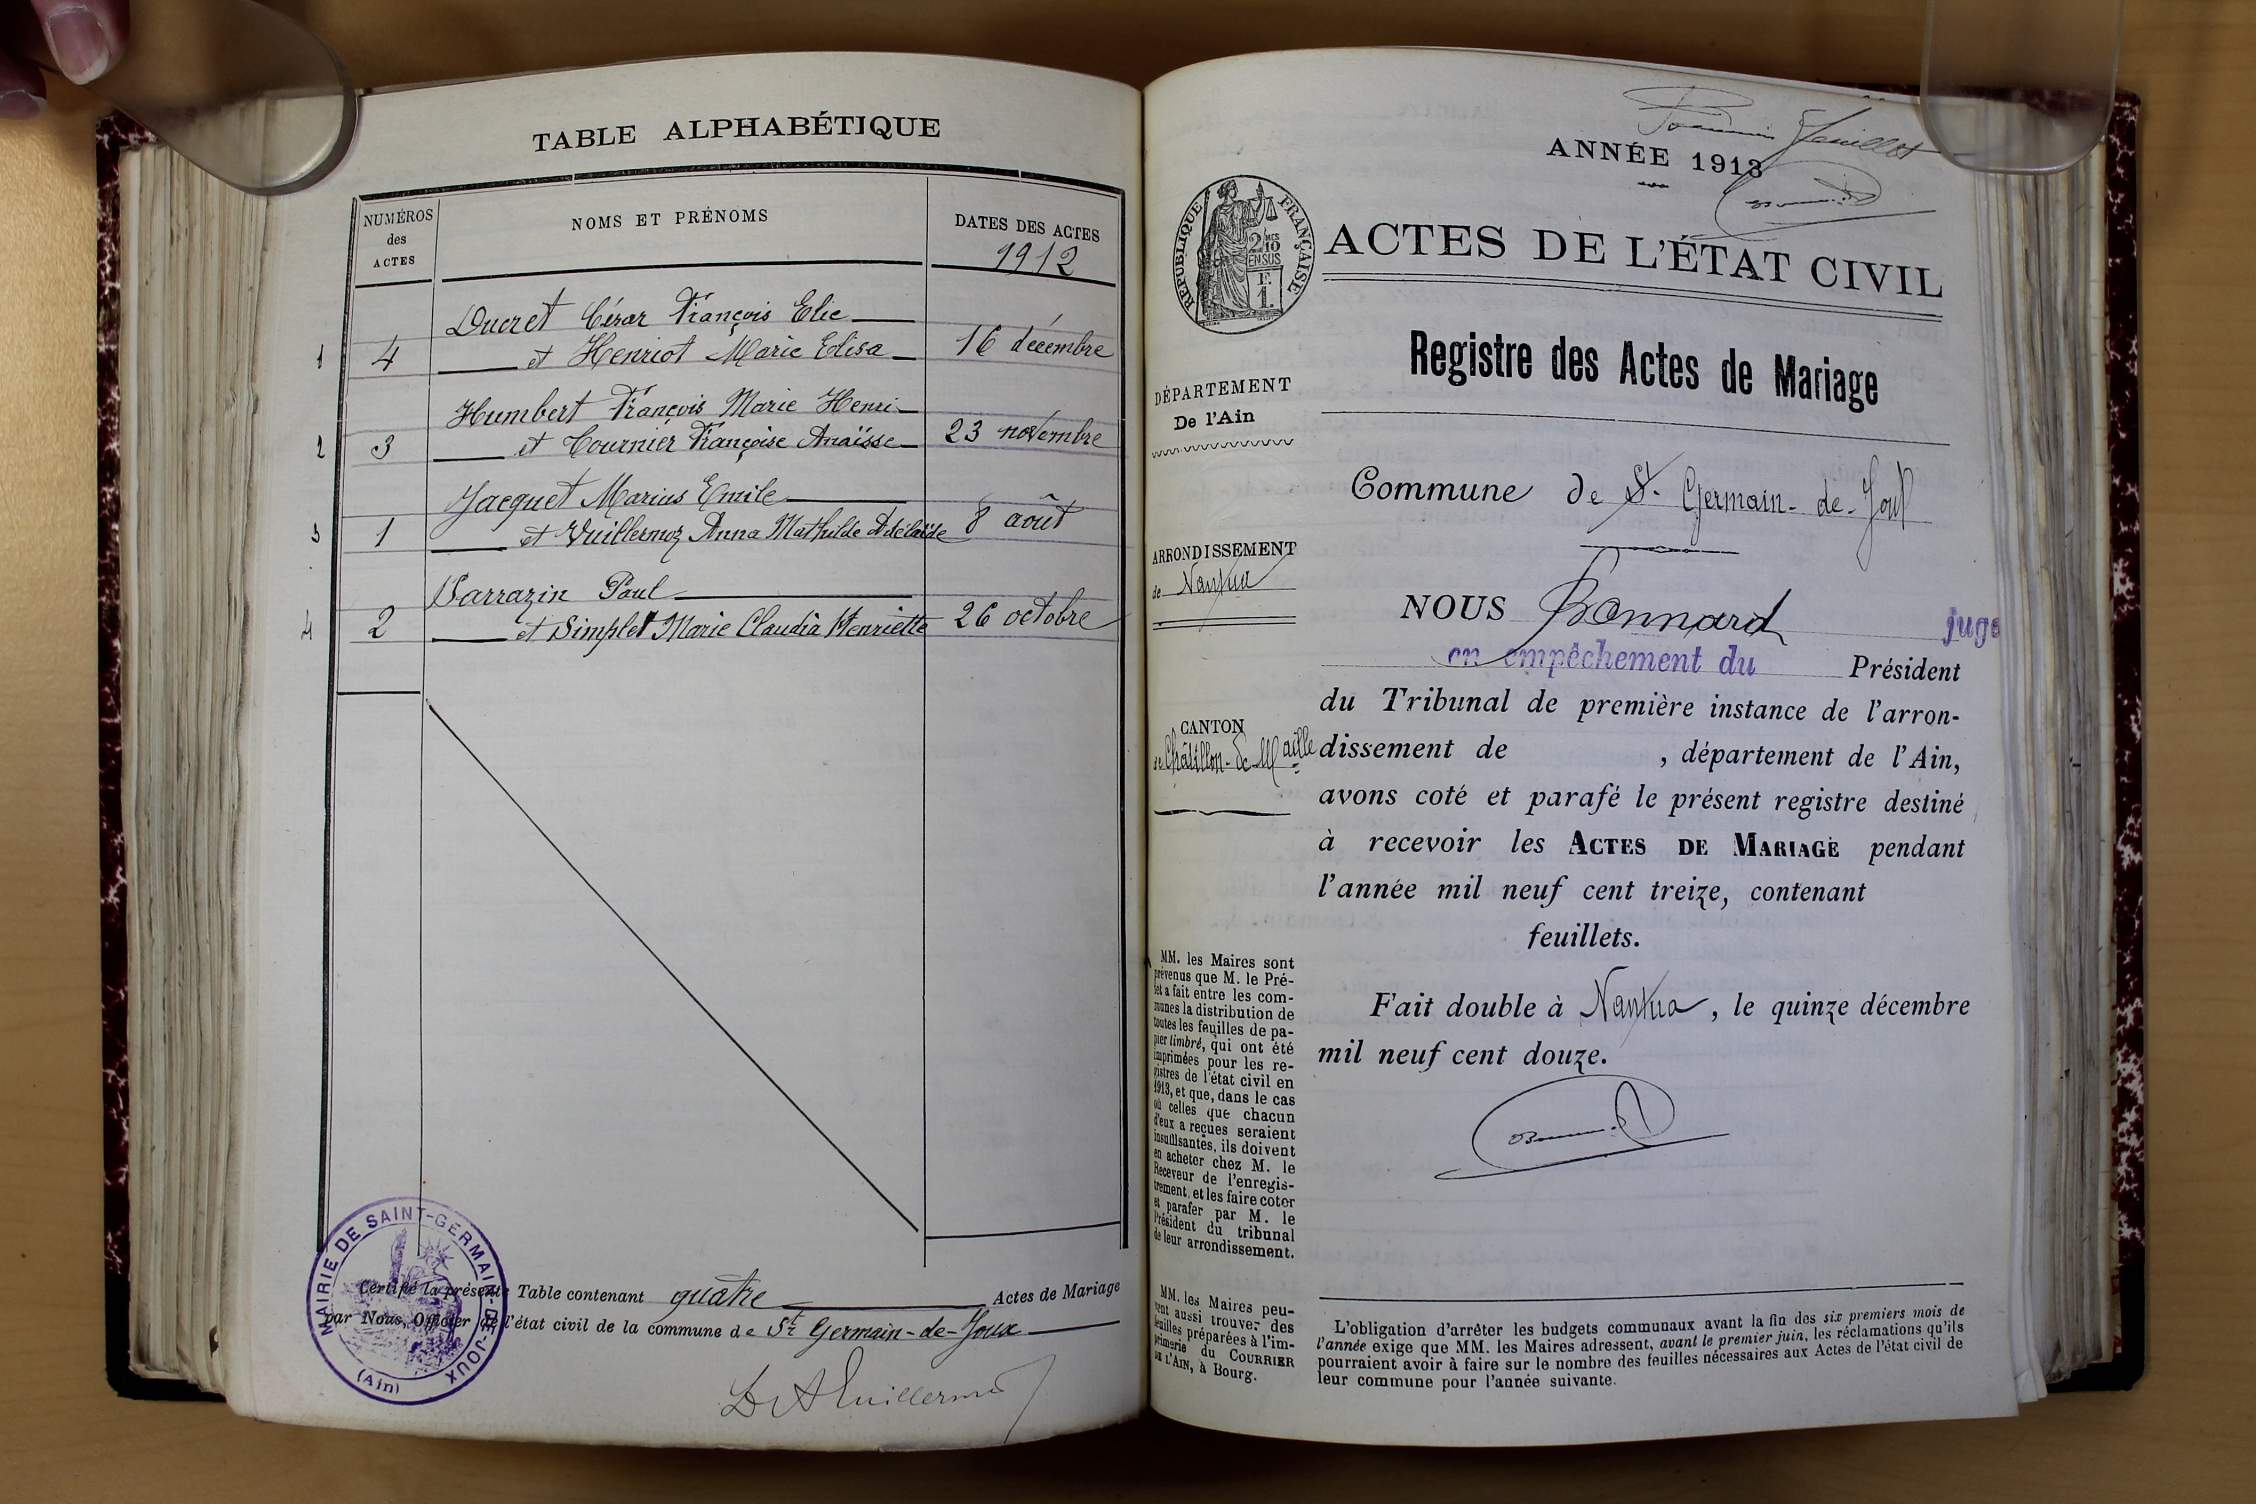 TABLE ALPHABÉTIQUE
NUMÉROS
des
ACTES
NOMS ET PRÉNOMS
DATES DES ACTES
1912
Ducret César François Elie
1 4 et Henriot Marie Elisa 16 décembre
Humbert François Marie Henri
2 3 et Cournier Françoise Anaïsse 23 novembre
Jacquet Marius Emile
3 1 et Vuillermoz Anna Mathilde Adélaïde 8 août
Sarrazin Paul
4 2 et Simplet Marie Claudia Henriette 26 octobre
MAIRIE DE SAINT-GERMAIN-DE-JOUX
(Ain)
Certifié la présente Table contenant quatre Actes de Mariage
par Nous, Officier de l'état civil de la commune de St Germain-de-Joux
Premier feuillet
ANNÉE 1913
RÉPUBLIQUE FRANÇAISE
2/10
EN SUS
F.
1.
ACTES DE L'ÉTAT CIVIL
Registre des Actes de Mariage
DÉPARTEMENT
De l'Ain
Commune de St. Germain-de-Joux
ARRONDISSEMENT
de Nantua
NOUS Bonnard juge
en empêchement du Président
du Tribunal de première instance de l'arron-
CANTON
de Châtillon-de-Maille
dissement de , département de l'Ain,
avons coté et parafé le présent registre destiné
à recevoir les ACTES DE MARIAGE pendant
l'année mil neuf cent treize, contenant
feuillets.
Fait double à Nantua, le quinze décembre
mil neuf cent douze.
MM. les Maires sont
prévenus que M. le Pré-
fet a fait entre les com-
munes la distribution de
toutes les feuilles de pa-
pier timbré, qui ont été
imprimées pour les re-
gistres de l'état civil en
1913, et que, dans le cas
où celles que chacun
d'eux a reçues seraient
insuffisantes, ils doivent
en acheter chez M. le
Receveur de l'enregis-
trement, et les faire coter
et parafer par M. le
Président du tribunal
de leur arrondissement.
MM. les Maires peu-
vent aussi trouver des
feuilles préparées à l'im-
primerie du COURRIER
DE L'AIN, à Bourg.
L'obligation d'arrêter les budgets communaux avant la fin des six premiers mois de
l'année exige que MM. les Maires adressent, avant le premier juin, les réclamations qu'ils
pourraient avoir à faire sur le nombre des feuilles nécessaires aux Actes de l'état civil de
leur commune pour l'année suivante.